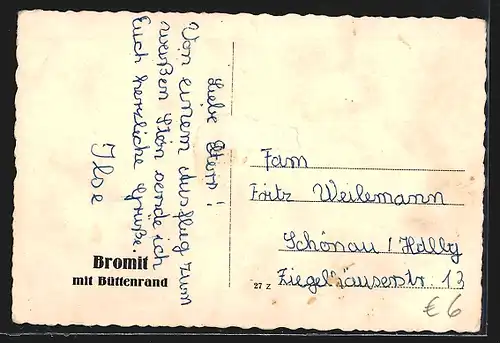 Liebe Eltern!
Von einem Ausflug zum
weißen Stein sende ich
Euch herzliche Grüße.
Ilse
Bromit
mit Büttenrand
27 Z
Fam
Fritz Weilemann
Schönau / Hdlbg
Ziegelhäuserstr. 13
€ 6